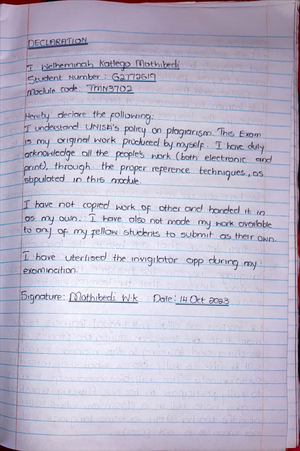 DECLARATION
I Welheminah Katlego Mathibedi
Student Number : 62772619
Module code: TMN3702
Hereby declare the following:
I understand UNISA's policy on plagiarism. This Exam
is my original work produced by myself. I have duly
acknowledge all the people's work (both electronic and
print), through the proper reference techniques, as
stipulated in this module.
I have not copied work of other and handed it in
as my own. I have also not made my work available
to any of my fellow students to submit as their own.
I have uterlised the invigilator app during my
examination.
Signature: Mathibedi W.K Date: 14 Oct 2023